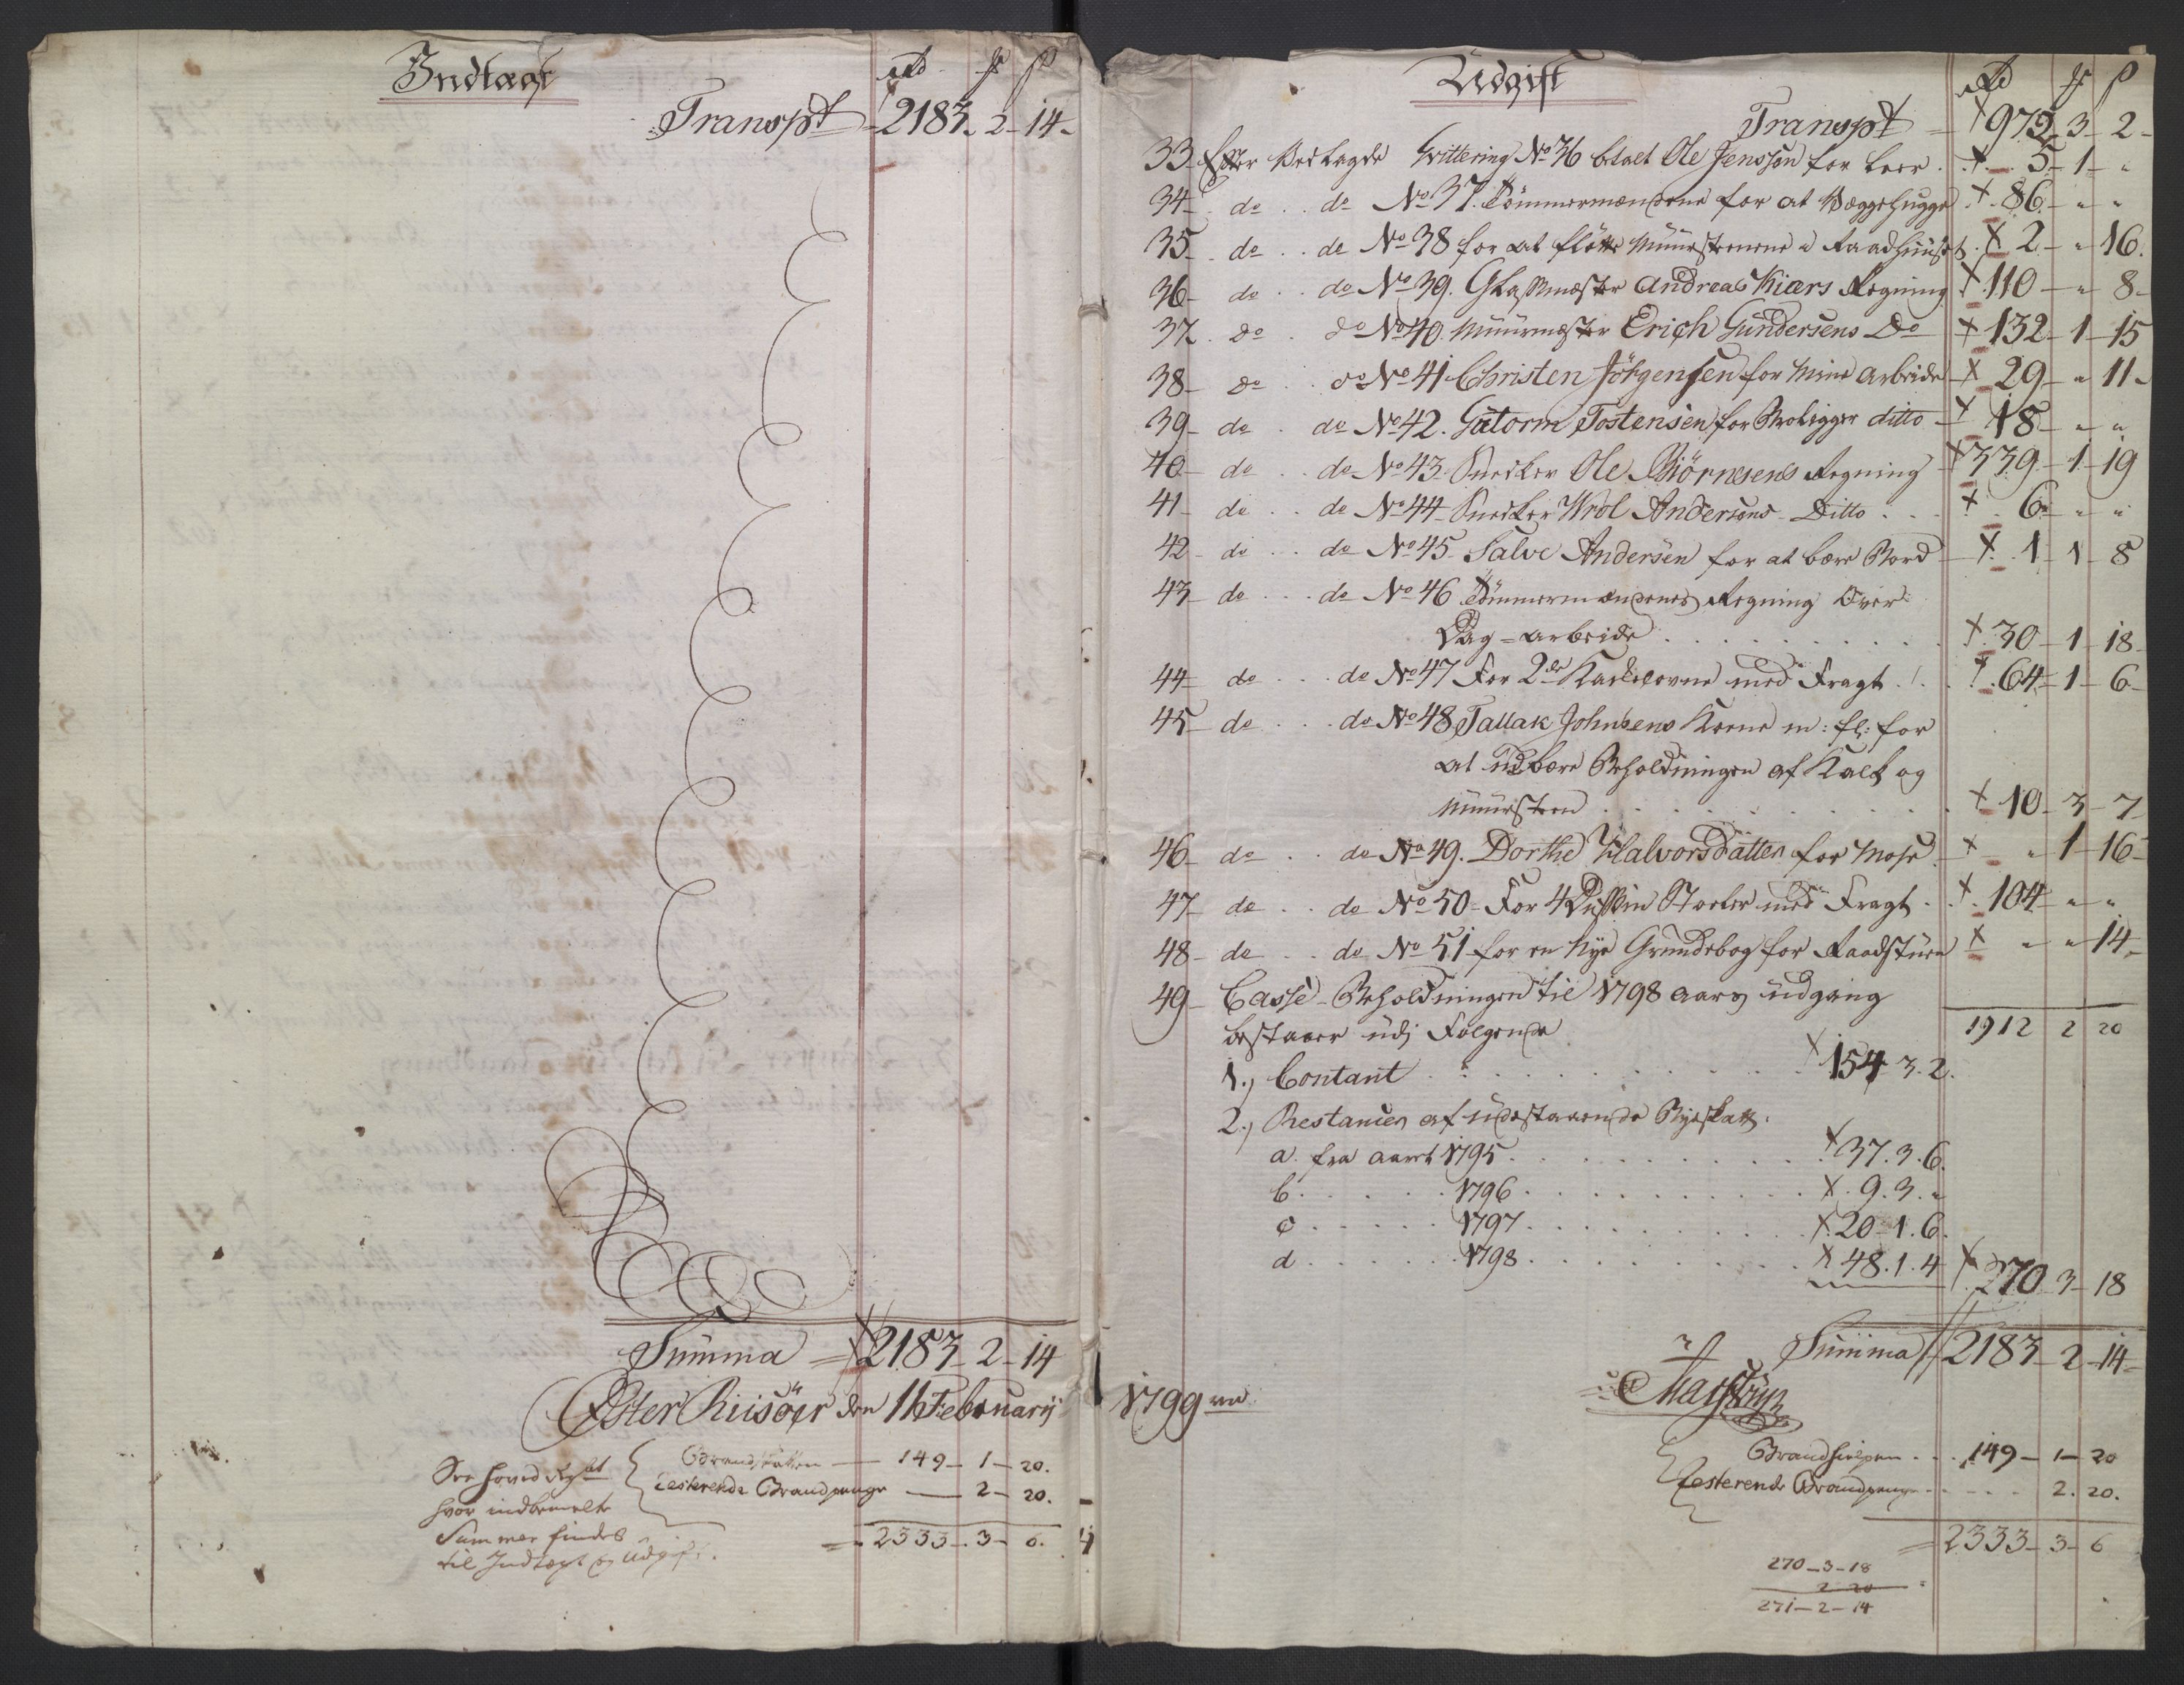 Indtægt
rd ß
Transpt 2183 - 2 - 14 -
Summa = 2183 - 2 - 14
Öster Riisöer den 16 Februarij
See hoved Regn
hvor indbemelte
Summer findes
til Indtægt og Udgift.
Brandskatten — 149 - 1 - 20.
resterende Brandpenge — 2 - 20.
= 2333 - 3 - 6.
Udgift
rd ß
Transpt = 972 - 3 - 2 -
33 Efter Vedlagde Qvittering No 36 betalt Ole Jenssøn for Leer . 5 - 1 - "
34 - do . . do No 37. Tömmermændene for at Væggehugge . 86 - " "
35 - do . . do No 38 for at flötte Muursteenene i Raadhuuset . 2 - " 16.
36 - do . . do No 39. Glassmæster Andreas Kiærs Regning 110 - " 8 -
37 - do . do No 40. Muurmæster Erich Gundersens Do 132 - 1 - 15
38 - do . . do No 41 Christen Jörgensen for Mine arbeide 29 - " 11 -
39 - do . do No 42. Gutorm Tostensen for Broligger ditto 18 - " "
40 - do . . do No 43 - Snedker Ole Biörnsens Regning 339 - 1 - 19
41 - do . . do No 44 - Snedker Wrol Andersens - Ditto . . . 6 - " "
42 - do . . . do No 45 - Salve Andersen for at bære Bord - 1 - 1 - 8
43 - do . . . do No 46 Tömmermændenes Regning Over
Dag = arbeide . . . . . . . . 30 - 1 - 18
44 - do . . . do No 47 For 2de Kackelovne med Fragt . . . 64 - 1 - 6 -
45 - do . . . do No 48 Tallak Johnsens Kone m: fl: for
at udbære Beholdningen af Kalk og
Muursteen . . . . . . . . 10 - 3 - 7
46 - do . . do No 49. Dorthe Halvorsdatter for Mose - " 1 - 16 -
47 - do . . do No 50 - For 4 Dussin Stoeler med Fragt . . 104 - " "
48 - do . . do No 51 for en Nye Grundebog for Raadstuen " - " 14 -
49 - Casse - Beholdningen til 1798 aars udgang
bestaaer udj Følgende
1912 2 20
1.) Contant . . . . . . . 154 - 3 . 2.
2.) Restancer af udestaaende Byeskatt.
a. fra aaret 1795 . . . . . . 37 . 3 . 6.
b . . . . . 1796 . . . . . . 9 . 3 . "
c . . . . . 1797 . . . . . . 20 - 1 . 6.
d . . . . . 1798 . . . . . . 48 . 1 . 4
270 - 3 - 18
Summa 2183 - 2 - 14 -
1799
Brandhielpen . . . 149 - 1 - 20
resterende Brandpenge . . . . 2 . 20.
= 2333 - 3 - 6
270 - 3 - 18
2 20
271 - 2 - 14